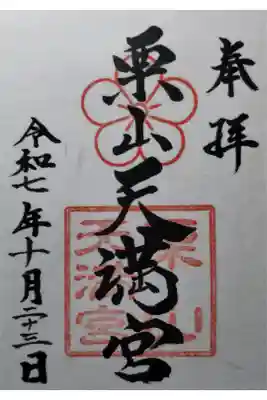 奉拝
栗山天満宮
栗山天満宮
令和七年十月二十三日